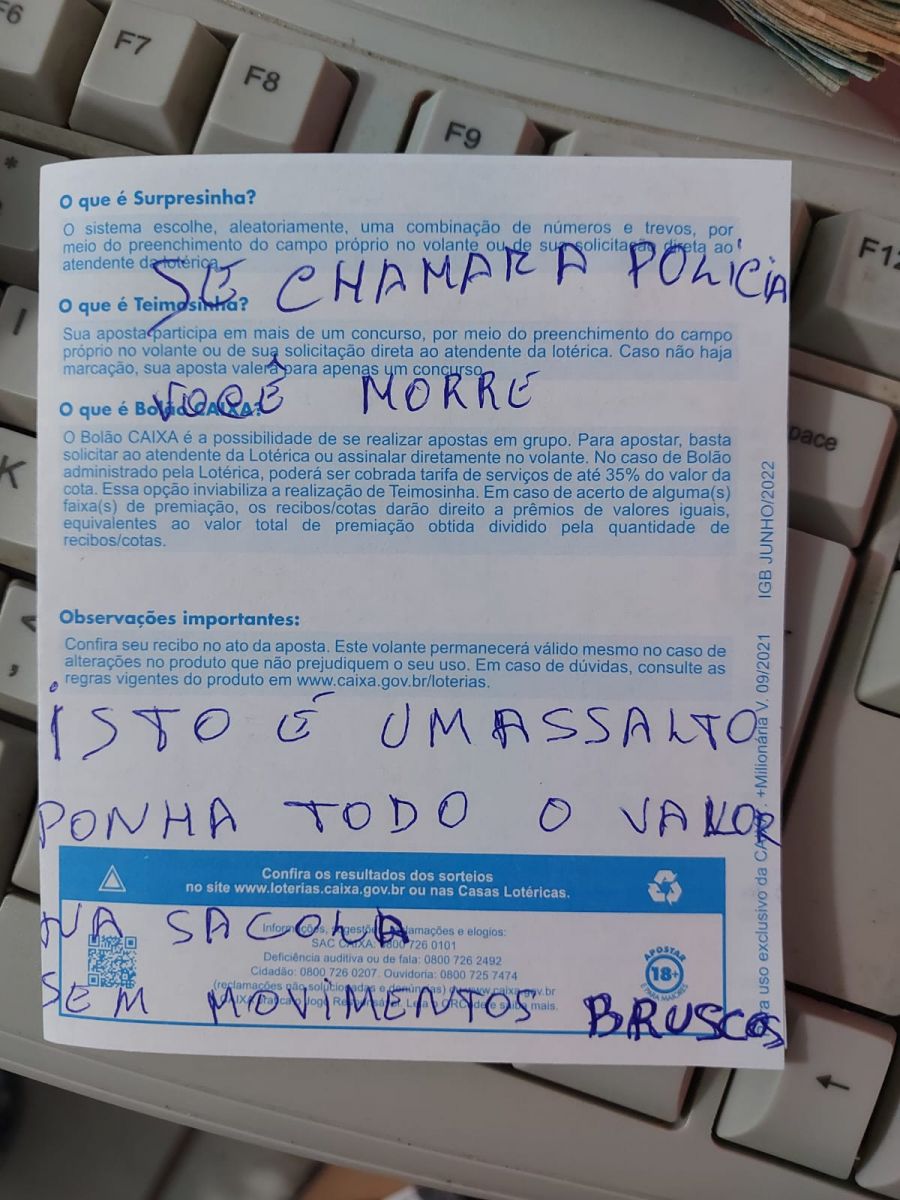 F6
F7
F8
F9
F12
O que é Surpresinha?
O sistema escolhe, aleatoriamente, uma combinação de números e trevos, por
meio do preenchimento do campo próprio no volante ou de sua solicitação direta ao
atendente da lotérica.
SE CHAMAR A POLÍCIA
O que é Teimosinha?
Sua aposta participa em mais de um concurso, por meio do preenchimento do campo
próprio no volante ou de sua solicitação direta ao atendente da lotérica. Caso não haja
marcação, sua aposta valerá para apenas um concurso.
VOCÊ MORRE
O que é Bolão CAIXA?
O Bolão CAIXA é a possibilidade de se realizar apostas em grupo. Para apostar, basta
solicitar ao atendente da Lotérica ou assinalar diretamente no volante. No caso de Bolão
administrado pela Lotérica, poderá ser cobrada tarifa de serviços de até 35% do valor da
cota. Essa opção inviabiliza a realização de Teimosinha. Em caso de acerto de alguma(s)
faixa(s) de premiação, os recibos/cotas darão direito a prêmios de valores iguais,
equivalentes ao valor total de premiação obtida dividido pela quantidade de
recibos/cotas.
Observações importantes:
Confira seu recibo no ato da aposta. Este volante permanecerá válido mesmo no caso de
alterações no produto que não prejudiquem o seu uso. Em caso de dúvidas, consulte as
regras vigentes do produto em www.caixa.gov.br/loterias.
ISTO É UM ASSALTO
PONHA TODO O VALOR
Confira os resultados dos sorteios
no site www.loterias.caixa.gov.br ou nas Casas Lotéricas.
NA SACOLA
Informações, sugestões, reclamações e elogios:
SAC CAIXA: 0800 726 0101
Deficiência auditiva ou de fala: 0800 726 2492
Cidadão: 0800 726 0207. Ouvidoria: 0800 725 7474
(reclamações não solucionadas e denúncias) www.caixa.gov.br
SEM MOVIMENTOS BRUSCOS
APOSTAR
18+
É PARA MAIORES
a uso exclusivo da +Milionária V. 09/2021 IGB JUNHO/2022
K
pace